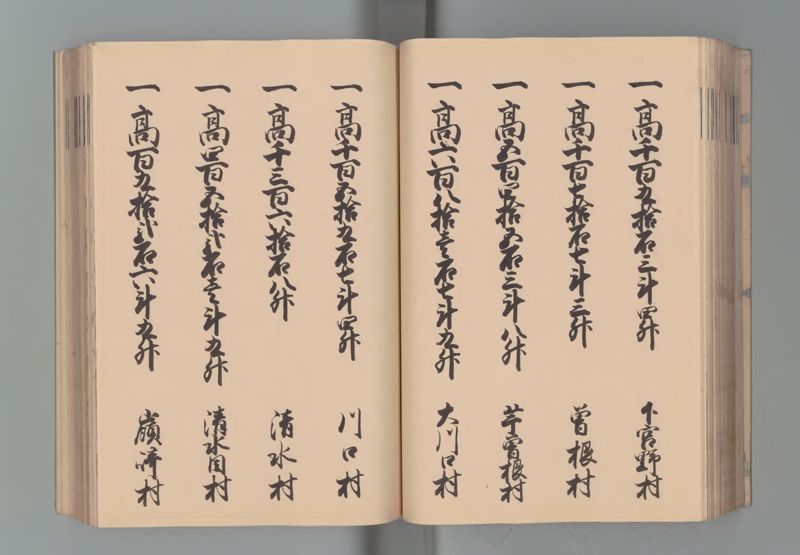 一高千百五拾石三斗四升 下宮野村
一高千百七拾石七斗三升 曽根村
一高五百四拾五石三斗八升 芋曽根村
一高六百八拾壱石七斗九升 大川口村
一高千百五拾九石七斗四升 川口村
一高千三百六拾石八升 清水村
一高四百五拾弐石壱斗九升 清水目村
一高百九拾弐石六斗九升 村